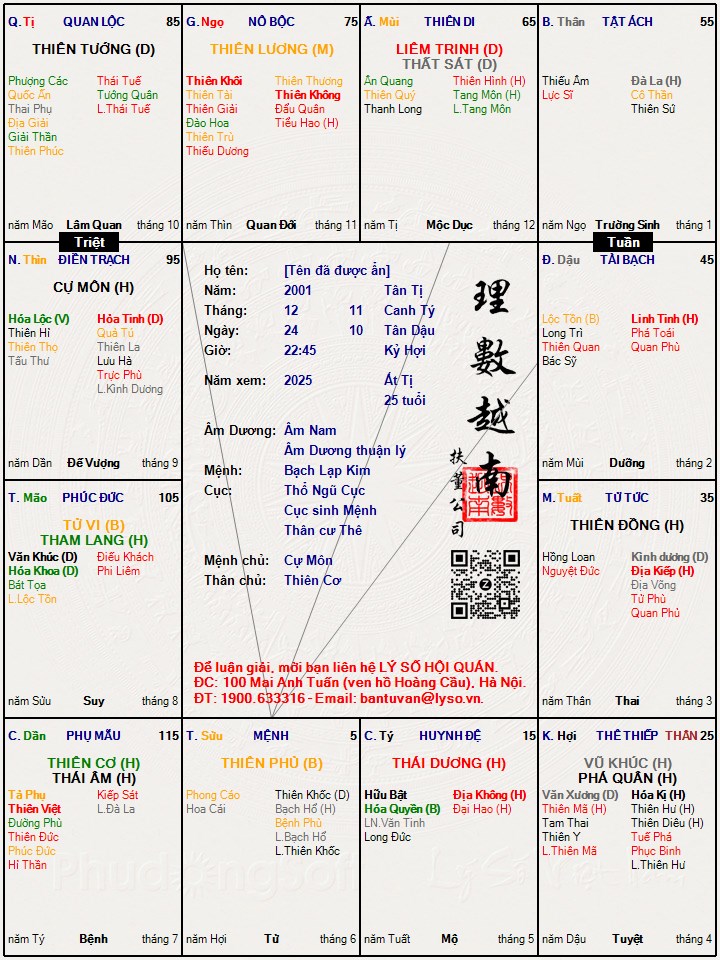 Q. Tị QUAN LỘC 85
THIÊN TƯỚNG (D)
Phượng Các Thái Tuế
Quốc Ấn Tướng Quân
Thai Phụ L.Thái Tuế
Địa Giải
Giải Thần
Thiên Phúc
năm Mão Lâm Quan tháng 10
G. Ngọ NÔ BỘC 75
THIÊN LƯƠNG (M)
Thiên Khôi Thiên Thương
Thiên Tài Thiên Không
Thiên Giải Đẩu Quân
Đào Hoa Tiểu Hao (H)
Thiên Trù
Thiếu Dương
năm Thìn Quan Đới tháng 11
Ấ. Mùi THIÊN DI 65
LIÊM TRINH (D)
THẤT SÁT (D)
Ân Quang Thiên Hình (H)
Thiên Quý Tang Môn (H)
Thanh Long L.Tang Môn
năm Tị Mộc Dục tháng 12
B. Thân TẬT ÁCH 55
Thiếu Âm Đà La (H)
Lực Sĩ Cô Thần
Thiên Sứ
năm Ngọ Trường Sinh tháng 1
Triệt
Tuần
N. Thìn ĐIỀN TRẠCH 95
CỰ MÔN (H)
Hóa Lộc (V) Hỏa Tinh (D)
Thiên Hỉ Quả Tú
Thiên Thọ Thiên La
Tấu Thư Lưu Hà
Trực Phù
L.Kình Dương
năm Dần Đế Vượng tháng 9
Họ tên: [Tên đã được ẩn]
Năm: 2001 Tân Tị
Tháng: 12 11 Canh Tý
Ngày: 24 10 Tân Dậu
Giờ: 22:45 Kỷ Hợi
Năm xem: 2025 Ất Tị
25 tuổi
Âm Dương: Âm Nam
Âm Dương thuận lý
Mệnh: Bạch Lạp Kim
Cục: Thổ Ngũ Cục
Cục sinh Mệnh
Thân cư Thê
Mệnh chủ: Cự Môn
Thân chủ: Thiên Cơ
理數越南
扶董公司
Để luận giải, mời bạn liên hệ LÝ SỐ HỘI QUÁN.
ĐC: 100 Mai Anh Tuấn (ven hồ Hoàng Cầu), Hà Nội.
ĐT: 1900.633316 - Email: bantuvan@lyso.vn.
Đ. Dậu TÀI BẠCH 45
Lộc Tồn (B) Linh Tinh (H)
Long Trì Phá Toái
Thiên Quan Quan Phù
Bác Sỹ
năm Mùi Dưỡng tháng 2
T. Mão PHÚC ĐỨC 105
TỬ VI (B)
THAM LANG (H)
Văn Khúc (D) Điếu Khách
Hóa Khoa (D) Phi Liêm
Bát Tọa
L.Lộc Tồn
năm Sửu Suy tháng 8
M. Tuất TỬ TỨC 35
THIÊN ĐỒNG (H)
Hồng Loan Kình dương (D)
Nguyệt Đức Địa Kiếp (H)
Địa Võng
Tử Phù
Quan Phủ
năm Thân Thai tháng 3
C. Dần PHỤ MẪU 115
THIÊN CƠ (H)
THÁI ÂM (H)
Tả Phụ Kiếp Sát
Thiên Việt L.Đà La
Đường Phù
Thiên Đức
Phúc Đức
Hỉ Thần
năm Tý Bệnh tháng 7
T. Sửu MỆNH 5
THIÊN PHỦ (B)
Phong Cáo Thiên Khốc (D)
Hoa Cái Bạch Hổ (H)
Bệnh Phù
L.Bạch Hổ
L.Thiên Khốc
năm Hợi Tử tháng 6
C. Tý HUYNH ĐỆ 15
THÁI DƯƠNG (H)
Hữu Bật Địa Không (H)
Hóa Quyền (B) Đại Hao (H)
LN.Văn Tinh
Long Đức
năm Tuất Mộ tháng 5
K. Hợi THÊ THIẾP THÂN 25
VŨ KHÚC (H)
PHÁ QUÂN (H)
Văn Xương (D) Hóa Kị (H)
Thiên Mã (H) Thiên Hư (H)
Tam Thai Thiên Diêu (H)
Thiên Y Tuế Phá
L.Thiên Mã Phục Binh
L.Thiên Hư
năm Dậu Tuyệt tháng 4